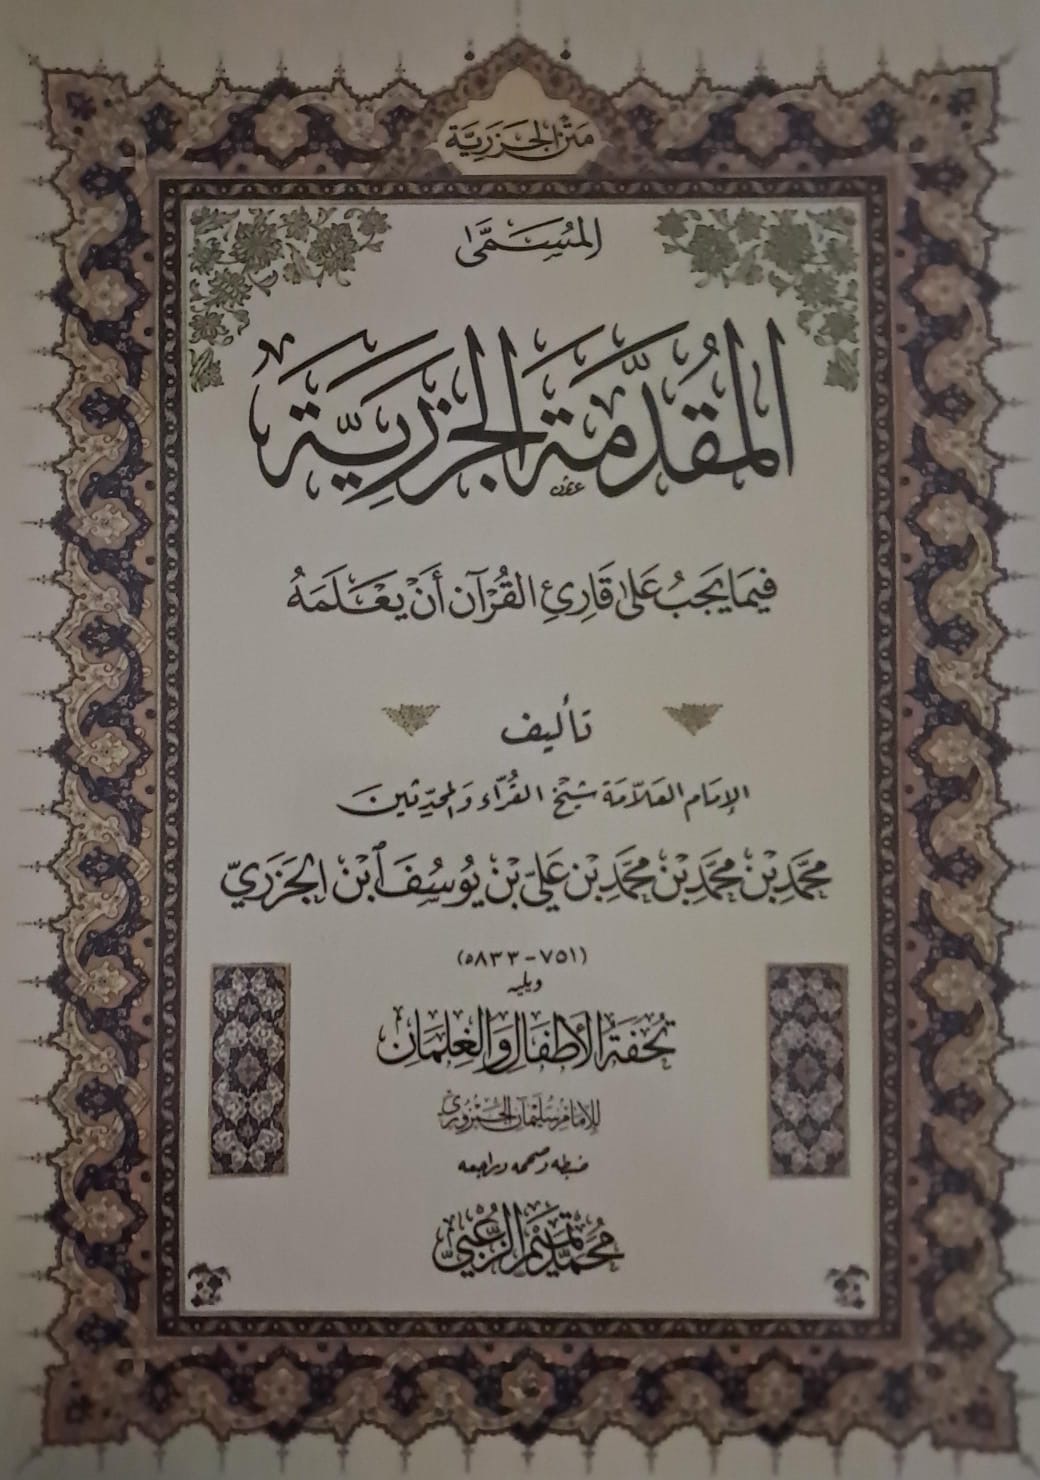 مَتْنُ الجَزَرِيَّة
المُسَمَّى
المُقَدِّمَة الجَزَرِيَّة
فِيمَا يَجِبُ عَلَى قَارِئِ القُرْآنِ أَنْ يَعْلَمَهُ
تأليف
الإمَام العَلاّمَة شَيْخ القُرَّاء وَالمحَدِّثينَ
محَمَّد بْنْ محَمَّد بْنْ محَمَّد بْنْ عَلِيّ بْنْ يُوسُفَ ٱبْنْ الجَزَرِيّ
(٧٥١ - ٨٣٣ه)
ويليه
تُحْفَةُ الأَطْفَالِ وَالغِلْمَان
للإمام سليمان الجمزوري
ضبطه وصححه وراجعه
محمد تميم الزعبي